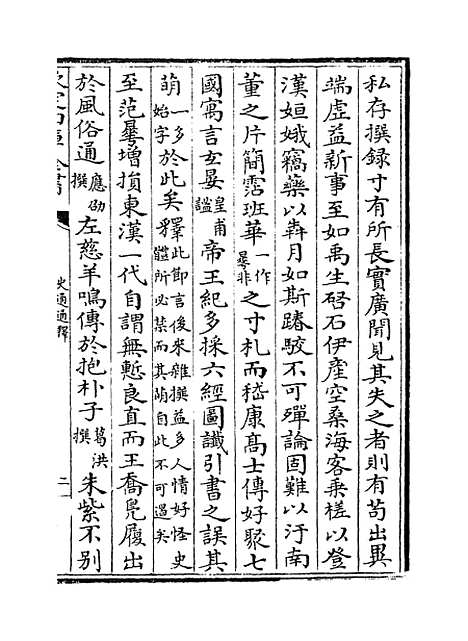 私存撰録寸有所長實廣聞見其失之者則有苟出異
端虛益新事至如禹生啓石伊產空桑海客乗槎以登
漢姮娥竊藥以奔月如斯踳駮不可殫論固難以汙南
董之片簡霑班華一作㬅非之寸札而嵇康髙士傳好聚七
國寓言玄晏皇甫謐帝王紀多採六經圖讖引書之誤其
萌一多始字於此矣釋此節言後來雜撰益多人情好怪史體所必禁而其萌自此不可遏矣
至范曅增損東漢一代自謂無慙良直而王喬鳬履出
於風俗通應劭撰左慈羊鳴傳於抱朴子葛洪撰朱紫不别
史通通釋
二